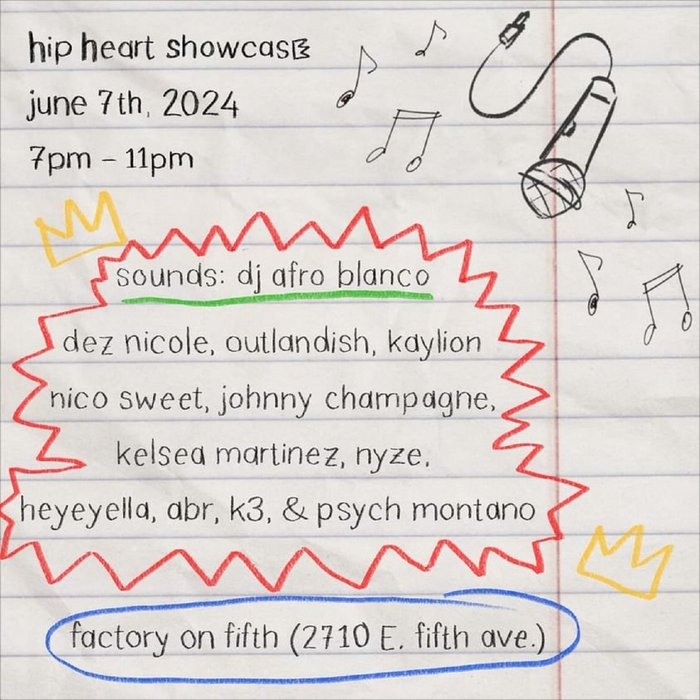 hip heart showcasE
june 7th, 2024
7pm – 11pm
sounds: dj afro blanco
dez nicole, outlandish, kaylion
nico sweet, johnny champagne,
kelsea martinez, nyze,
heyeyella, abr, k3, & psych montano
factory on fifth (2710 E. fifth ave.)